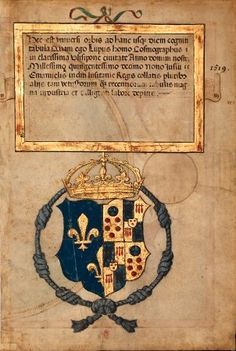 Hec est universi orbis ad hanc usq; diem cogniti
tabula quam ego Lupus homo Cosmographus
in clarissima Ulisipone civitate Anno domini nostri
Millessimo quingentessimo decimo nono iussu
Emanuelis incliti lusitanie Regis collatis pluribus
aliis tam vetustiorum q; recentiorum tabulis mag
na industria et diligenti labore depinxi
1519.